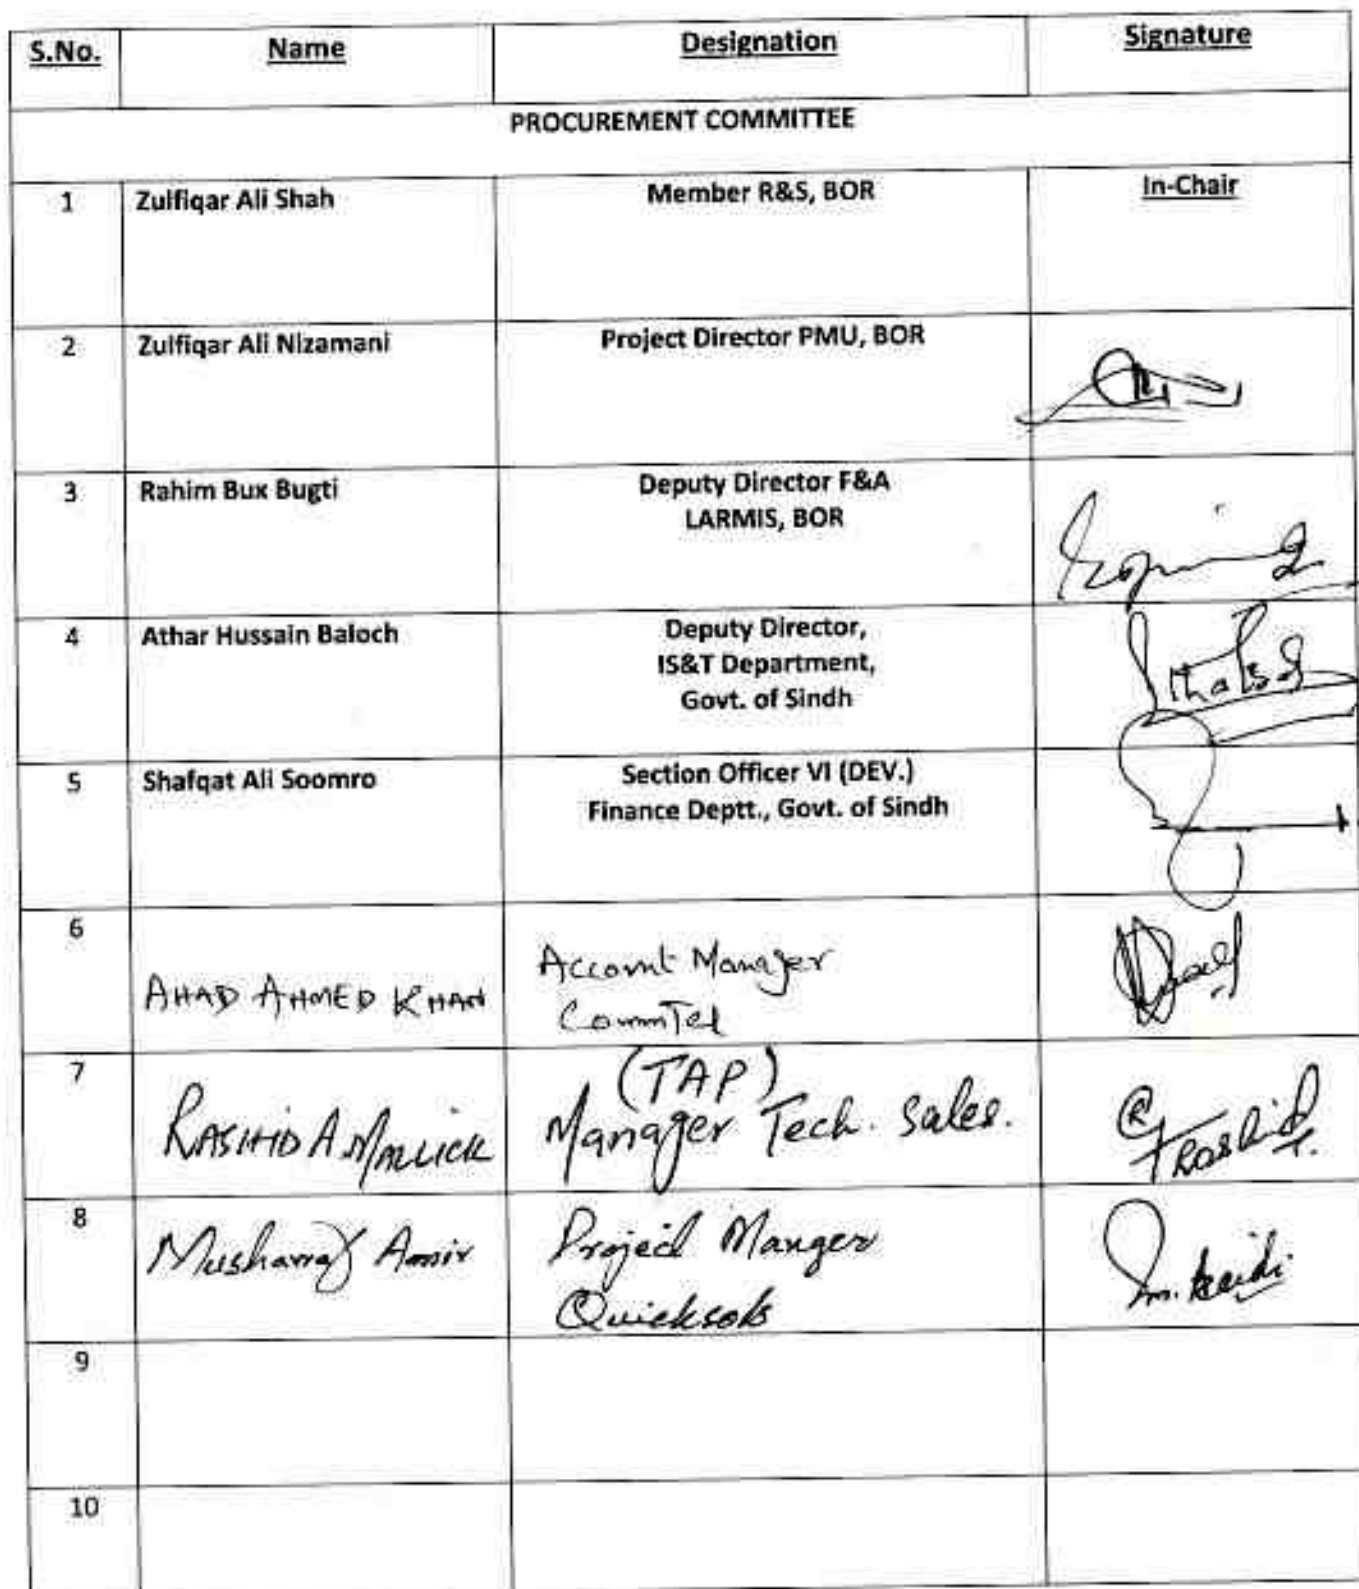 S.No. Name Designation Signature
PROCUREMENT COMMITTEE
1 Zulfiqar Ali Shah Member R&S, BOR In-Chair
2 Zulfiqar Ali Nizamani Project Director PMU, BOR
3 Rahim Bux Bugti Deputy Director F&A
LARMIS, BOR
4 Athar Hussain Baloch Deputy Director,
IS&T Department,
Govt. of Sindh
5 Shafqat Ali Soomro Section Officer VI (DEV.)
Finance Deptt., Govt. of Sindh
6
AHAD AHMED KHAN Account Manager
CommTel
7 (TAP)
RASHID A. MALLICK Manager Tech. Sales.
8 Musharraf Amir Project Manger
Quicksols
9
10